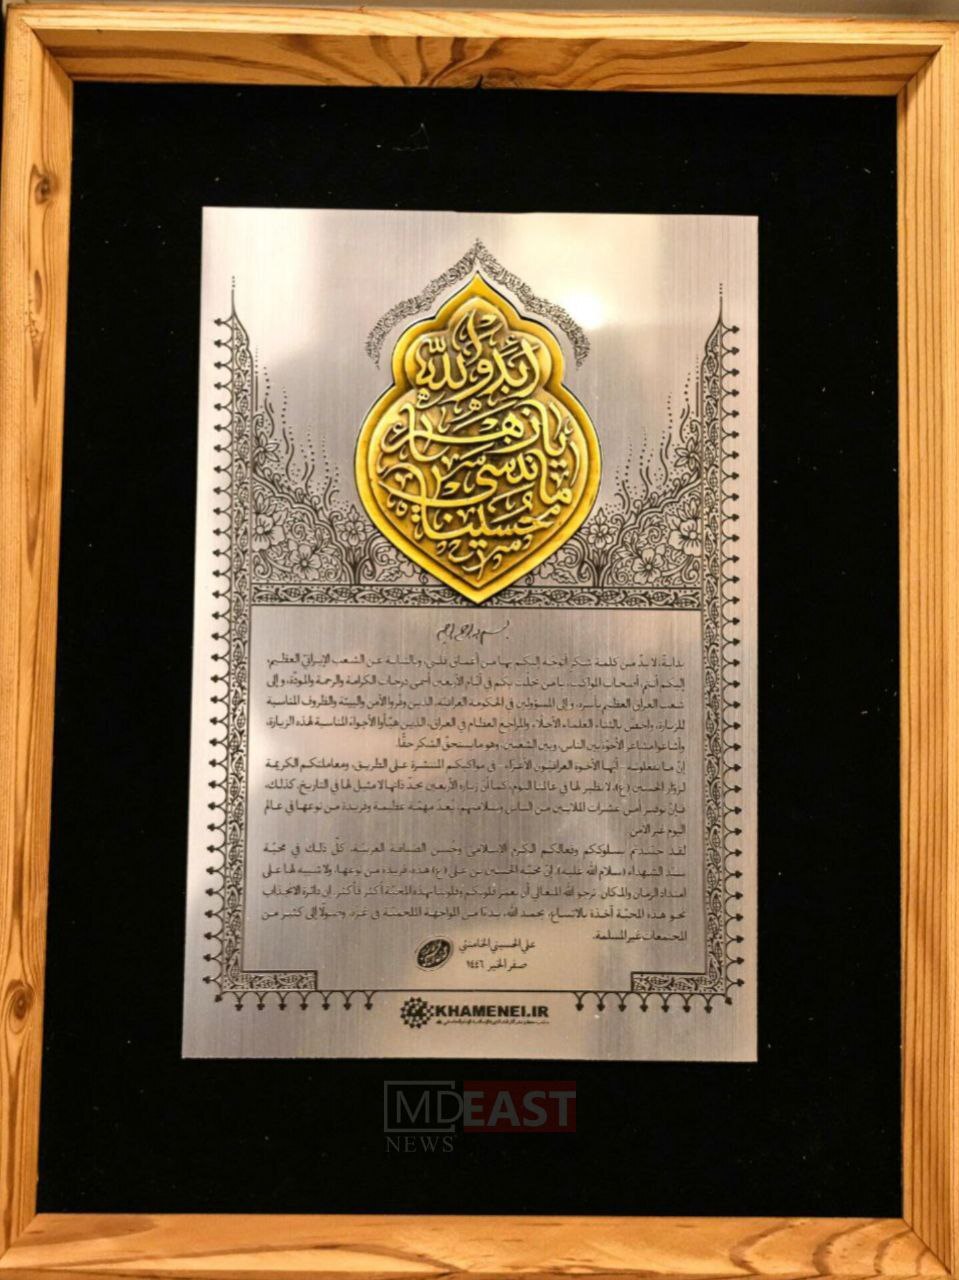 أبد والله
يا زهراء
ما ننسى
حسيناه
بدايةً، لا بدّ من كلمة شكر أتوجّه إليكم بها من أعماق قلبي، وبالنيابة عن الشعب الإيراني العظيم،
إليكم أنتم أصحاب المواكب، يا من تجلّت بكم في أيّام الأربعين أسمى درجات الكرامة والرحمة والمودّة، وإلى
شعب العراق العظيم بأسره، وإلى المسؤولين في الحكومة العراقيّة، الذين وفّروا الأمن والبيئة والظروف المناسبة
للزيارة، وأخصّ بالثناء العلماء الأجلّاء والمراجع العظام في العراق، الذين هيّأوا الأجواء المناسبة لهذه الزيارة،
وأشاعوا مشاعر الأخوّة بين الناس، وبين الشعبين، وهو ما يستحقّ الشكر حقًّا.
إنّ ما تفعلونه - أيّها الأخوة العراقيّون الأعزّاء - في مواكبكم المنتشرة على الطريق، ومعاملتكم الكريمة
لزوّار الحسين (ع)، لا نظير لها في عالمنا اليوم، كما أنّ زيارة الأربعين بحدّ ذاتها لا مثيل لها في التاريخ. كذلك،
فإنّ توفير أمن عشرات الملايين من الناس وسلامتهم، يُعدّ مهمّة عظيمة وفريدة من نوعها في عالم
اليوم غير الآمن.
لقد جسّدتم بسلوككم وفعالكم الكرم الإسلاميّ وحُسن الضيافة العربيّة، كلّ ذلك في محبّة
سيّد الشهداء (سلام الله عليه). إنّ محبّة الحسين بن علي (ع) هذه، فريدة من نوعها، ولا شبيه لها على
امتداد الزمان والمكان. نرجو الله المتعالي أن يعمّر قلوبكم وقلوبنا بهذه المحبّة أكثر فأكثر. إنّ دائرة الانجذاب
نحو هذه المحبّة آخذة بالاتساع، بحمد الله، بدءًا من المواجهة الملحميّة في غزة، وصولًا إلى كثير من
المجتمعات غير المسلمة.
علي الحسيني الخامنئي
صفر الخير ١٤٤٦
KHAMENEI.IR
MDEAST
NEWS